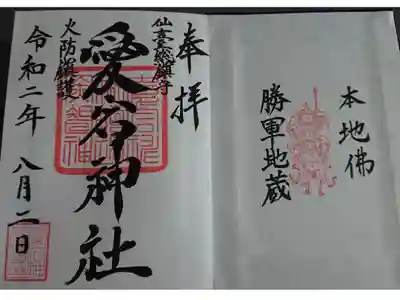 本地佛
勝軍地蔵
奉拝
仙臺総鎮守
愛宕神社
火防鎮護
令和二年 八月二日